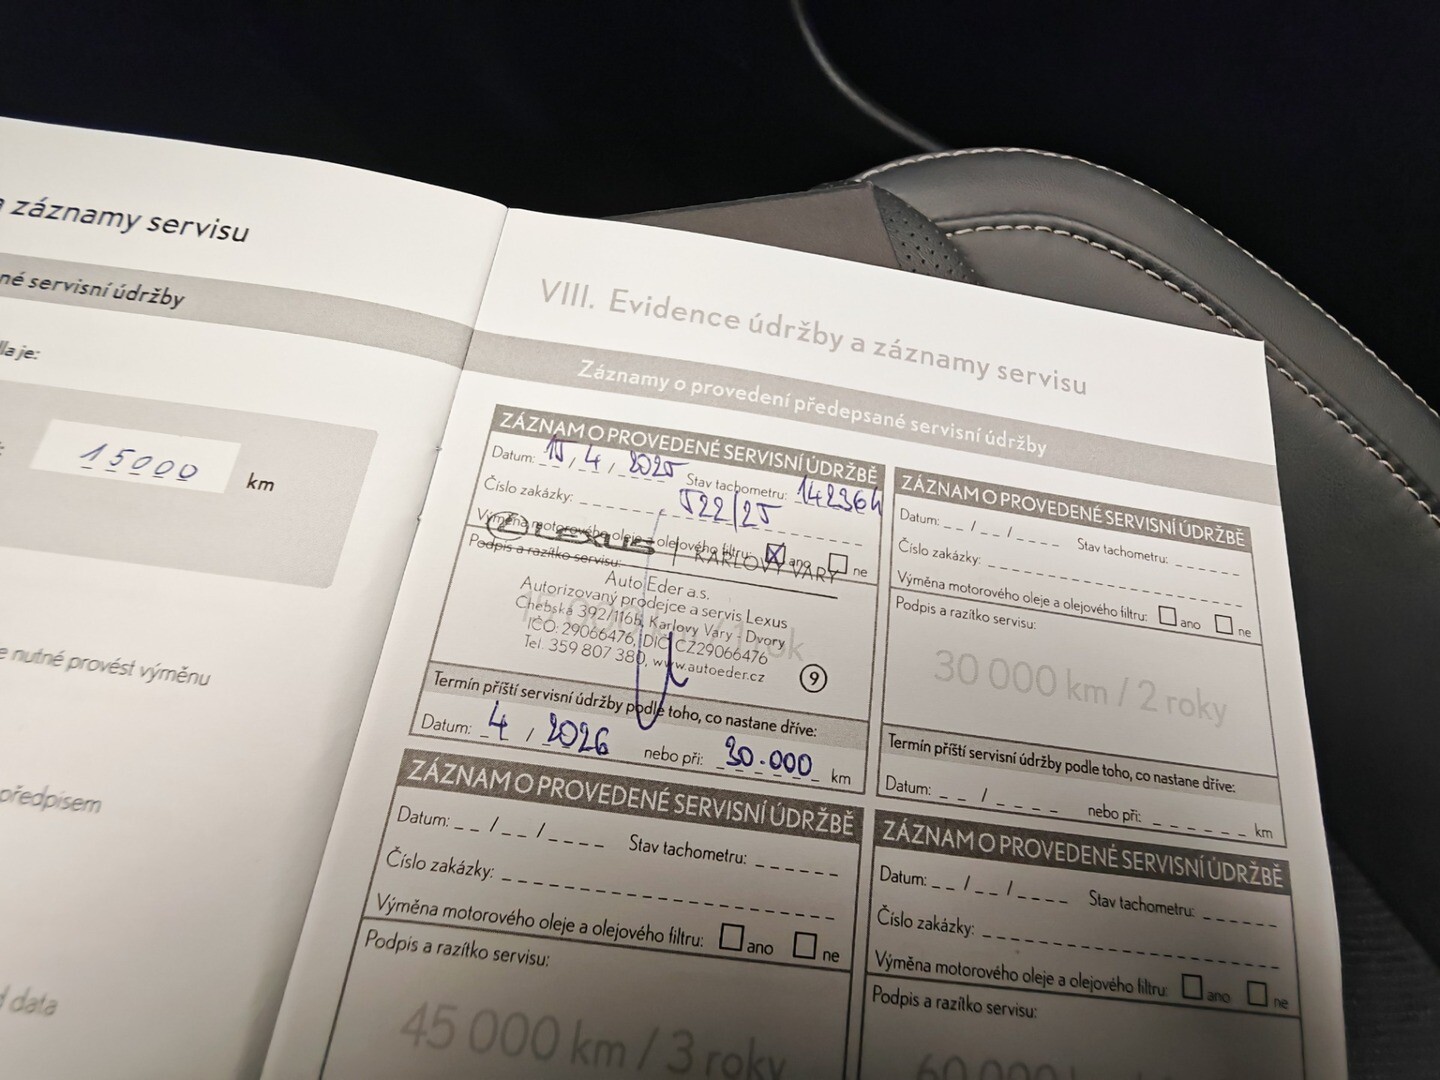 záznamy servisu
né servisní údržby
la je:
15000 km
e nutné provést výměnu
předpisem
data
VIII. Evidence údržby a záznamy servisu
Záznamy o provedení předepsané servisní údržby
ZÁZNAM O PROVEDENÉ SERVISNÍ ÚDRŽBĚ
Datum: 15/4/2025 Stav tachometru:
Číslo zakázky: 522/25
Výměna motorového oleje a olejového filtru: ano ne
LEXUS | KARLOVY VARY
Podpis a razítko servisu:
Auto Eder a.s.
Autorizovaný prodejce a servis Lexus
Chebská 392/116b, Karlovy Vary - Dvory
IČO: 29066476, DIČ CZ29066476
Tel. 359 807 380, www.autoeder.cz
9
15 000 km / 1 rok
Termín příští servisní údržby podle toho, co nastane dříve:
Datum: 4 / 2026 nebo při: 30.000 km
ZÁZNAM O PROVEDENÉ SERVISNÍ ÚDRŽBĚ
Datum: _ _ / _ _ / _ _ _ _ Stav tachometru: _ _ _ _ _ _
Číslo zakázky:
Výměna motorového oleje a olejového filtru: ano ne
Podpis a razítko servisu:
30 000 km / 2 roky
Termín příští servisní údržby podle toho, co nastane dříve:
Datum: _ _ / _ _ _ _ nebo při: _ _ _ _ _ _ km
ZÁZNAM O PROVEDENÉ SERVISNÍ ÚDRŽBĚ
Datum: _ _ / _ _ / _ _ _ _ Stav tachometru: _ _ _ _ _ _
Číslo zakázky:
Výměna motorového oleje a olejového filtru: ano ne
Podpis a razítko servisu:
45 000 km / 3 roky
ZÁZNAM O PROVEDENÉ SERVISNÍ ÚDRŽBĚ
Datum: _ _ / _ _ / _ _ _ _ Stav tachometru: _ _ _ _ _ _
Číslo zakázky:
Výměna motorového oleje a olejového filtru: ano ne
Podpis a razítko servisu:
60 000 km